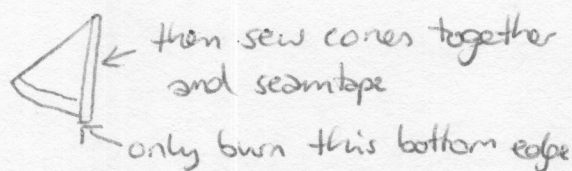 then sew cones together
and seamtape
only burn this bottom edge